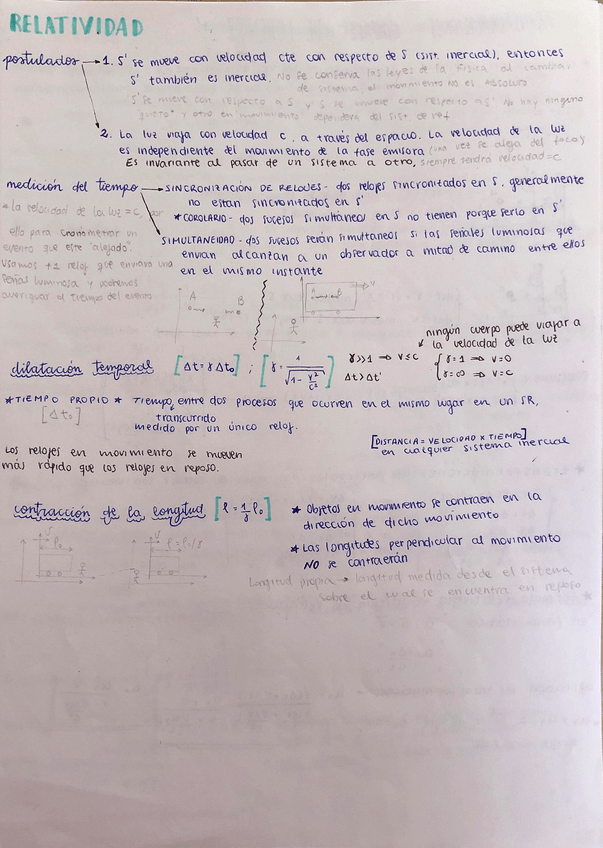 RELATIVIDAD
postulados → 1. S' se mueve con velocidad cte con respecto de S (sist. inercial), entonces
S' también es inercial. No se conserva las leyes de la física al cambiar
de sistema, el movimiento no es absoluto
S' se mueve con respecto a S y S se mueve con respecto a S'. No hay ninguno
"quieto" y otro en movimiento, dependerá del sist de ref.
2. La luz viaja con velocidad c, a través del espacio. La velocidad de la luz
es independiente del movimiento de la fase emisora (una vez se aleja del foco) y
Es invariante al pasar de un sistema a otro, siempre tendrá velocidad = c
medición del tiempo → SINCRONIZACIÓN DE RELOJES - dos relojes sincronitados en S, generalmente
no estan sincronitados en S'
* COROLARIO - dos sucesos simultáneos en S no tienen porque serlo en S'
* la velocidad de la luz = c, por
ello para cronometrar un
evento que este "alejado"
usamos +1 reloj que enviara una
señal luminosa y podremos
averiguar el tiempo del evento
SIMULTANEIDAD - dos sucesos serán simultaneos si las señales luminosas que
envian alcantan a un observador a mitad de camino entre ellos
en el mismo instante
A B
V
ningún cuerpo puede viajar a
la velocidad de la luz
dilatación temporal [Δt = γ Δt₀] ; [γ = 1/√(1 - v²/c²)] γ>>1 ⇒ v ≤ c { γ=1 ⇒ v=0
Δt > Δt' γ=∞ ⇒ v=c
* TIEMPO PROPIO * Tiempo transcurrido entre dos procesos que ocurren en el mismo lugar en un SR,
[Δt₀] medido por un único reloj.
[DISTANCIA = VELOCIDAD x TIEMPO]
en cualquier sistema inercial
Los relojes en movimiento se mueven
más rápido que los relojes en reposo.
contracción de la longitud [ℓ = 1/γ ℓ₀]
* Objetos en movimiento se contraen en la
dirección de dicho movimiento
* Las longitudes perpendicular al movimiento
NO se contraerán
V ℓ₀ V ℓ = ℓ₀/γ
Longitud propia → longitud medida desde el sistema
sobre el cual se encuentra en reposo